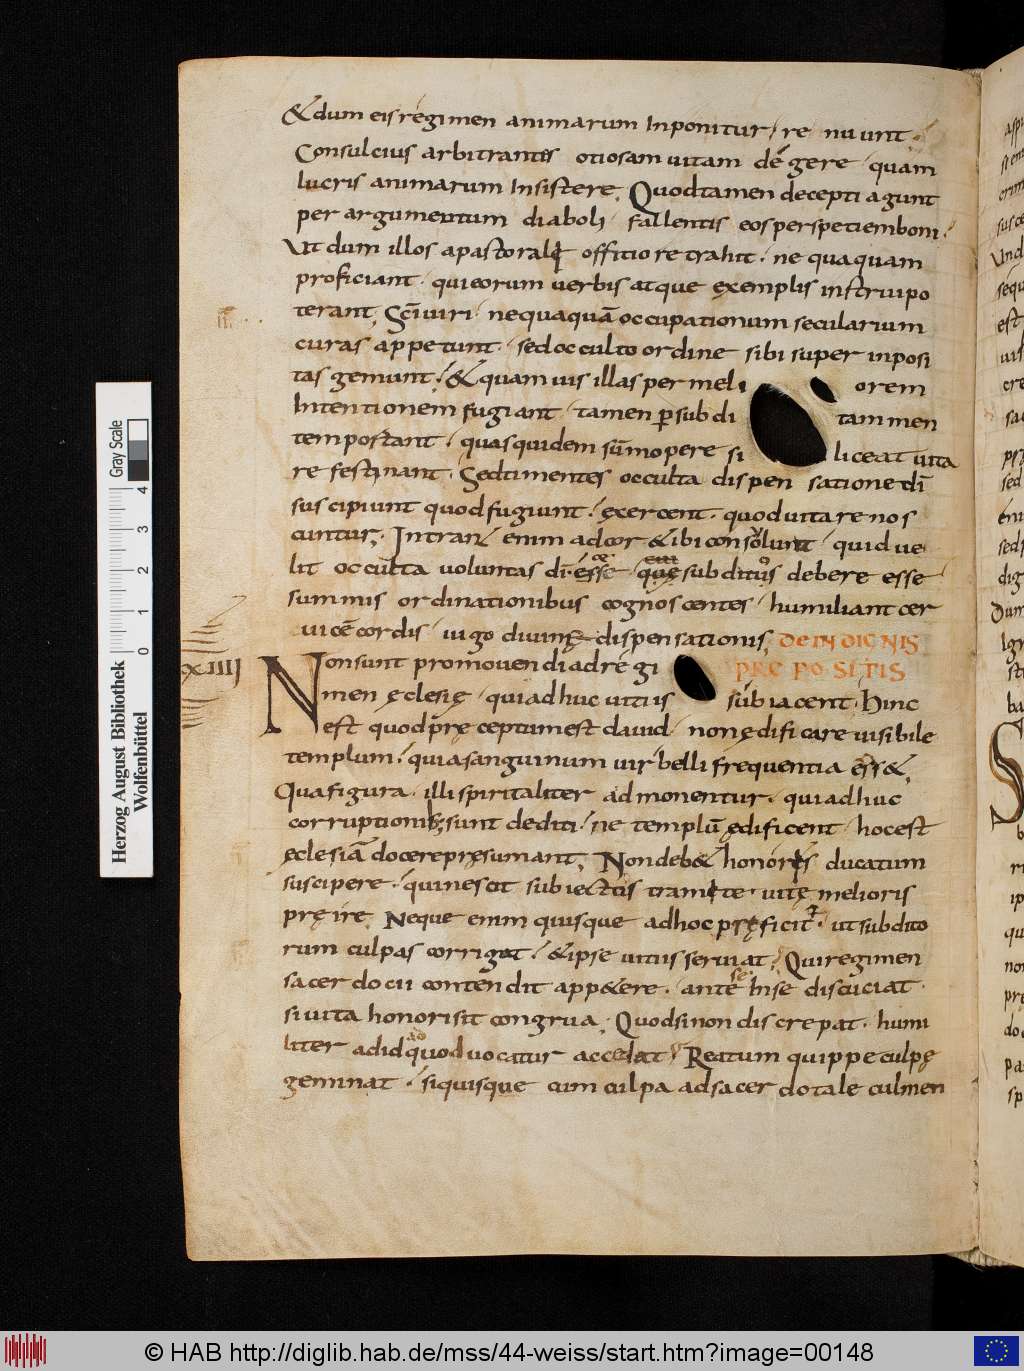 &dum eis régimen animarum Inponitur, re nuunt.
Consulcius arbitrantes otiosam uitam dégere quam
lucris animarum Insistere. Quodtamen decepti agunt
per argumentum diaboli. fallentis eos perspetiemboni.
Ut dum illos apastorali offitio retrahit. ne quaquam
proficiant. qui eorum uerbis atque exemplis instruipo
terant. Sc̄i uiri nequaquā occupationum secularium
curas appetunt. sedocculto ordine sibi super inposi
tas gemunt. & quamuis illas per meli orem
Intentionem fugiant. tamen ꝑ subdi tam men
tem portant. quas quidem sūmopere si liceat uita
re festinant. Sedtimentes occulta dispen satione dī
suscipiunt quodfugiunt. exercent. quoduitare nos
cuntur. Intrant enim adcor & ibi consolunt quid ue
lit occulta uoluntas dī. esse que subditus debere esse
summis ordinationibus cognoscentes. humiliant cer
uicē cordis iugo diuine dispensationis. DE INDIGNIS
XIIII PRE PO SITIS
Non sunt promouendi adregi
men ęclesię qui adhuc uitiis subiacent. Hinc
est quodpręceptum est dauid non ędificare uisibile
templum. quia sanguinum uir belli frequentia ess&.
Qua figura. illi spiritaliter admonentur. qui adhuc
corruptionib; sunt dediti. ne templū ędificent. hoc est
ęclesiā docere pręsumant. Nondeb& honoris ducatum
suscipere. qui nescit subiectis tramite uitę melioris
pręire. Neque enim quisque adhoc pręficit. ut subdito
rum culpas corrigat. & ipse uitiis seruiat. Qui regimen
sacerdocii contendit app&ere. ante Inse discuciat.
si uita honori sit congrua. Quod si non discrepat. humi
liter ad id quod uocatur accedat. Reatum quippe culpę
geminat. siquisque cum culpa adsacerdotale culmen
Herzog August Bibliothek
Wolfenbüttel
Gray Scale
0 1 2 3 4
© HAB http://diglib.hab.de/mss/44-weiss/start.htm?image=00148